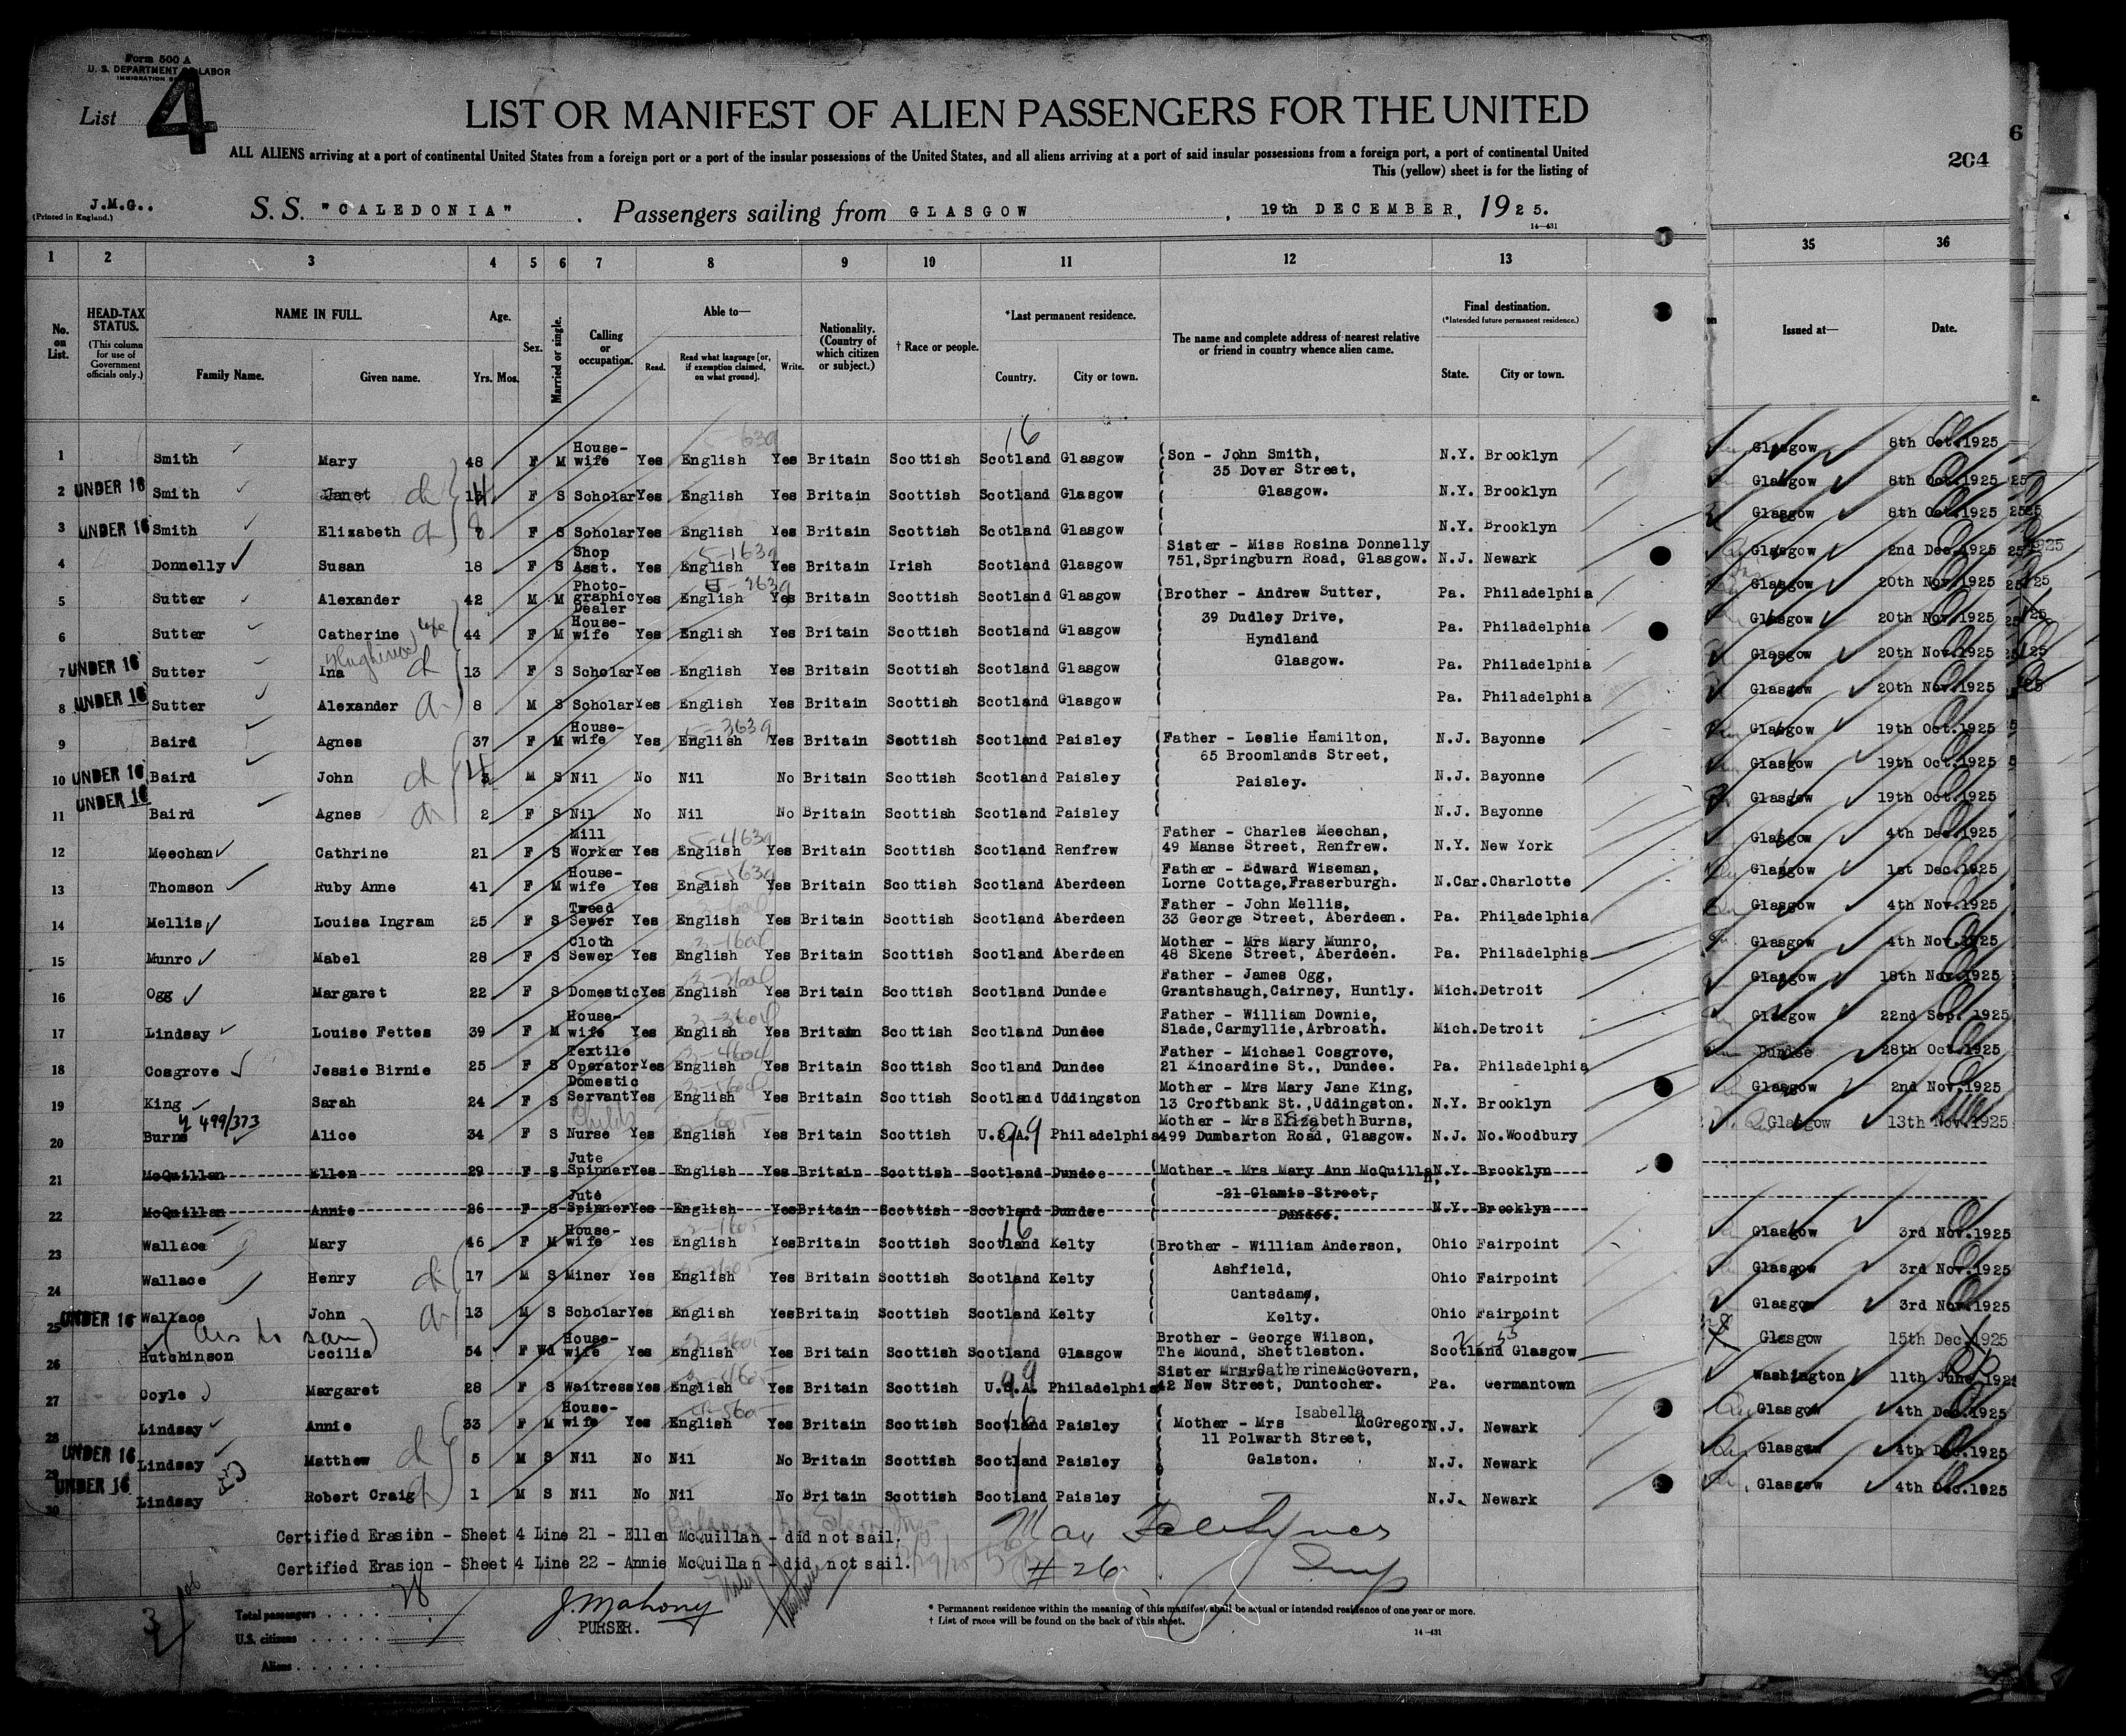 Form 500 A
U. S. DEPARTMENT OF LABOR
List 4
LIST OR MANIFEST OF ALIEN PASSENGERS FOR THE UNITED
ALL ALIENS arriving at a port of continental United States from a foreign port or a port of the insular possessions of the United States, and all aliens arriving at a port of said insular possessions from a foreign port, a port of continental United
This (yellow) sheet is for the listing of
204
6
J.M.G..
(Printed in England.)
S. S. "CALEDONIA" . Passengers sailing from GLASGOW , 19th DECEMBER, 1925.
14—431
1 2 3 4 5 6 7 8 9 10 11 12 13 35 36
No. on List. HEAD-TAX STATUS. (This column for use of Government officials only.) NAME IN FULL. Family Name. Given name. Age. Yrs. Mos. Sex. Married or single. Calling or occupation. Able to— Read. Read what language [or, if exemption claimed, on what ground]. Write. Nationality. (Country of which citizen or subject.) † Race or people. *Last permanent residence. Country. City or town. The name and complete address of nearest relative or friend in country whence alien came. Final destination. (*Intended future permanent residence.) State. City or town. Issued at— Date.
16
1 Smith Mary 48 F M House-wife Yes English Yes Britain Scottish Scotland Glasgow Son - John Smith, N.Y. Brooklyn Glasgow 8th Oct.1925
35 Dover Street,
2 UNDER 16 Smith Janet ch F S Scholar Yes English Yes Britain Scottish Scotland Glasgow Glasgow. N.Y. Brooklyn Glasgow 8th Oct.1925
3 UNDER 16 Smith Elizabeth ch F S Scholar Yes English Yes Britain Scottish Scotland Glasgow N.Y. Brooklyn Glasgow 8th Oct.1925
4 Donnelly Susan 18 F S Shop Asst. Yes English Yes Britain Irish Scotland Glasgow Sister - Miss Rosina Donnelly 751,Springburn Road, Glasgow. N.J. Newark Glasgow 2nd Dec.1925
5 Sutter Alexander 42 M M Photo-graphic Dealer Yes English Yes Britain Scottish Scotland Glasgow Brother - Andrew Sutter, Pa. Philadelphia Glasgow 20th Nov.1925
39 Dudley Drive,
6 Sutter Catherine wife 44 F M House-wife Yes English Yes Britain Scottish Scotland Glasgow Hyndland Pa. Philadelphia Glasgow 20th Nov.1925
7 UNDER 16 Sutter Ina ch 13 F S Scholar Yes English Yes Britain Scottish Scotland Glasgow Glasgow. Pa. Philadelphia Glasgow 20th Nov.1925
8 UNDER 16 Sutter Alexander ch 8 M S Scholar Yes English Yes Britain Scottish Scotland Glasgow Pa. Philadelphia Glasgow 20th Nov.1925
9 Baird Agnes 37 F M House-wife Yes English Yes Britain Scottish Scotland Paisley Father - Leslie Hamilton, N.J. Bayonne Glasgow 19th Oct.1925
65 Broomlands Street,
10 UNDER 16 Baird John ch M S Nil No Nil No Britain Scottish Scotland Paisley Paisley. N.J. Bayonne Glasgow 19th Oct.1925
11 UNDER 16 Baird Agnes ch 2 F S Nil No Nil No Britain Scottish Scotland Paisley N.J. Bayonne Glasgow 19th Oct.1925
12 Meechan Cathrine 21 F S Mill Worker Yes English Yes Britain Scottish Scotland Renfrew Father - Charles Meechan, 49 Manse Street, Renfrew. N.Y. New York Glasgow 4th Dec.1925
13 Thomson Ruby Anne 41 F M House-wife Yes English Yes Britain Scottish Scotland Aberdeen Father - Edward Wiseman, Lorne Cottage,Fraserburgh. N.Car. Charlotte Glasgow 1st Dec.1925
14 Mellis Louisa Ingram 25 F S Tweed Sewer Yes English Yes Britain Scottish Scotland Aberdeen Father - John Mellis, 33 George Street, Aberdeen. Pa. Philadelphia Glasgow 4th Nov.1925
15 Munro Mabel 28 F S Cloth Sewer Yes English Yes Britain Scottish Scotland Aberdeen Mother - Mrs Mary Munro, 48 Skene Street, Aberdeen. Pa. Philadelphia Glasgow 4th Nov.1925
16 Ogg Margaret 22 F S Domestic Yes English Yes Britain Scottish Scotland Dundee Father - James Ogg, Grantshaugh,Cairney, Huntly. Mich. Detroit Glasgow 18th Nov.1925
17 Lindsay Louise Fettes 39 F M House-wife Yes English Yes Britain Scottish Scotland Dundee Father - William Downie, Slade,Carmyllie,Arbroath. Mich. Detroit Glasgow 22nd Sep.1925
18 Cosgrove Jessie Birnie 25 F S Textile Operator Yes English Yes Britain Scottish Scotland Dundee Father - Michael Cosgrove, 21 Kincardine St., Dundee. Pa. Philadelphia Dundee 28th Oct.1925
19 King Sarah 24 F S Domestic Servant Yes English Yes Britain Scottish Scotland Uddingston Mother - Mrs Mary Jane King, 13 Croftbank St.,Uddingston. N.Y. Brooklyn Glasgow 2nd Nov.1925
499/373
20 Burns Alice 34 F S Childs Nurse Yes English Yes Britain Scottish U.S.A. 99 Philadelphia Mother - Mrs Elizabeth Burns, 499 Dumbarton Road, Glasgow. N.J. No.Woodbury Glasgow 13th Nov.1925
21 McQuillan Ellen 29 F S Jute Spinner Yes English Yes Britain Scottish Scotland Dundee Mother - Mrs Mary Ann McQuillan, N.Y. Brooklyn
21 Glamis Street,
22 McQuillan Annie 26 F S Jute Spinner Yes English Yes Britain Scottish Scotland Dundee Dundee. N.Y. Brooklyn
16
23 Wallace Mary 46 F M House-wife Yes English Yes Britain Scottish Scotland Kelty Brother - William Anderson, Ohio Fairpoint Glasgow 3rd Nov.1925
Ashfield,
24 Wallace Henry ch 17 M S Miner Yes English Yes Britain Scottish Scotland Kelty Cantsdam, Ohio Fairpoint Glasgow 3rd Nov.1925
25 UNDER 16 Wallace John ch 13 M S Scholar Yes English Yes Britain Scottish Scotland Kelty Kelty. Ohio Fairpoint Glasgow 3rd Nov.1925
26 Hutchinson Cecilia 54 F Wd House-wife Yes English Yes Britain Scottish Scotland Glasgow Brother - George Wilson, The Mound, Shettleston. Scotland Glasgow Glasgow 15th Dec.1925
27 Coyle Margaret 28 F S Waitress Yes English Yes Britain Scottish U.S.A. 99 Philadelphia Sister Mrs Catherine McGovern, 42 New Street, Duntocher. Pa. Germantown Washington 11th June,192
28 Lindsay Annie 33 F M House-wife Yes English Yes Britain Scottish Scotland Paisley Mother - Mrs Isabella McGregor N.J. Newark Glasgow 4th Dec.1925
11 Polwarth Street,
29 UNDER 16 Lindsay Matthew ch 5 M S Nil No Nil No Britain Scottish Scotland Paisley Galston. N.J. Newark Glasgow 4th Dec.1925
30 UNDER 16 Lindsay Robert Craig ch 1 M S Nil No Nil No Britain Scottish Scotland Paisley N.J. Newark Glasgow 4th Dec.1925
Certified Erasion - Sheet 4 Line 21 - Ellen McQuillan - did not sail.
Certified Erasion - Sheet 4 Line 22 - Annie McQuillan - did not sail.
# 26
Total passengers 28
U.S. citizens
Aliens
J. Mahony
PURSER.
* Permanent residence within the meaning of this manifest shall be actual or intended residence of one year or more.
† List of races will be found on the back of this sheet.
14—431